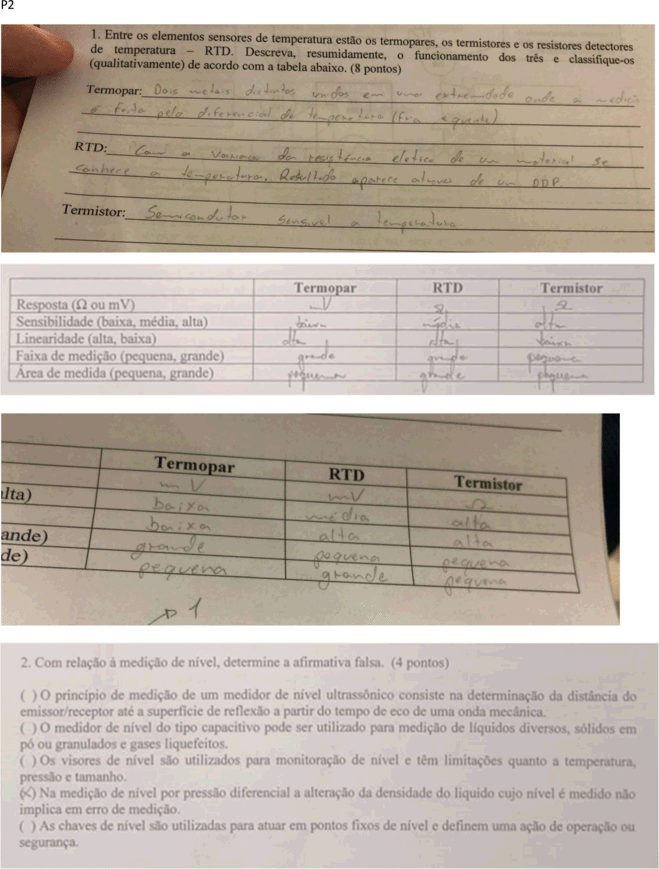 P2
1. Entre os elementos sensores de temperatura estão os termopares, os termistores e os resistores detectores
de temperatura – RTD. Descreva, resumidamente, o funcionamento dos três e classifique-os
(qualitativamente) de acordo com a tabela abaixo. (8 pontos)
Termopar: Dois metais distintos unidos em uma extremidade onde a medição
é feita pelo diferencial de temperatura (fria e quente)
RTD: Com a variação da resistência eletrica de um material se
conhece a temperatura. Resultado aparece atraves de um DDP.
Termistor: Semicondutor sensivel a temperatura
Termopar RTD Termistor
Resposta (Ω ou mV) mV Ω Ω
Sensibilidade (baixa, média, alta) baixa média alta
Linearidade (alta, baixa) alta alta baixa
Faixa de medição (pequena, grande) grande grande pequena
Área de medida (pequena, grande) pequena grande pequena
Termopar RTD Termistor
mV mV Ω
alta) baixa média alta
baixa alta alta
ande) grande pequena pequena
de) pequena grande pequena
1
2. Com relação à medição de nível, determine a afirmativa falsa. (4 pontos)
( ) O princípio de medição de um medidor de nível ultrassônico consiste na determinação da distância do
emissor/receptor até a superfície de reflexão a partir do tempo de eco de uma onda mecânica.
( ) O medidor de nível do tipo capacitivo pode ser utilizado para medição de líquidos diversos, sólidos em
pó ou granulados e gases liquefeitos.
( ) Os visores de nível são utilizados para monitoração de nível e têm limitações quanto a temperatura,
pressão e tamanho.
(X) Na medição de nível por pressão diferencial a alteração da densidade do liquido cujo nível é medido não
implica em erro de medição.
( ) As chaves de nível são utilizadas para atuar em pontos fixos de nível e definem uma ação de operação ou
segurança.